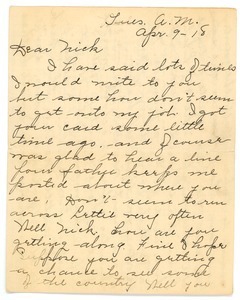 Tues. A.M.
Apr. 9-18
Dear Nick
I have said lots of times
I would write to you
but some how don't seem
to get onto my job. I got
your card some little
time ago, and of course
was glad to hear a line
Your father keeps me
posted about where you
are. Don't seem to run
across very often
Well Nick how are you
getting along Fine I hope
Suppose you are getting
a chance to see some
of the country Well you